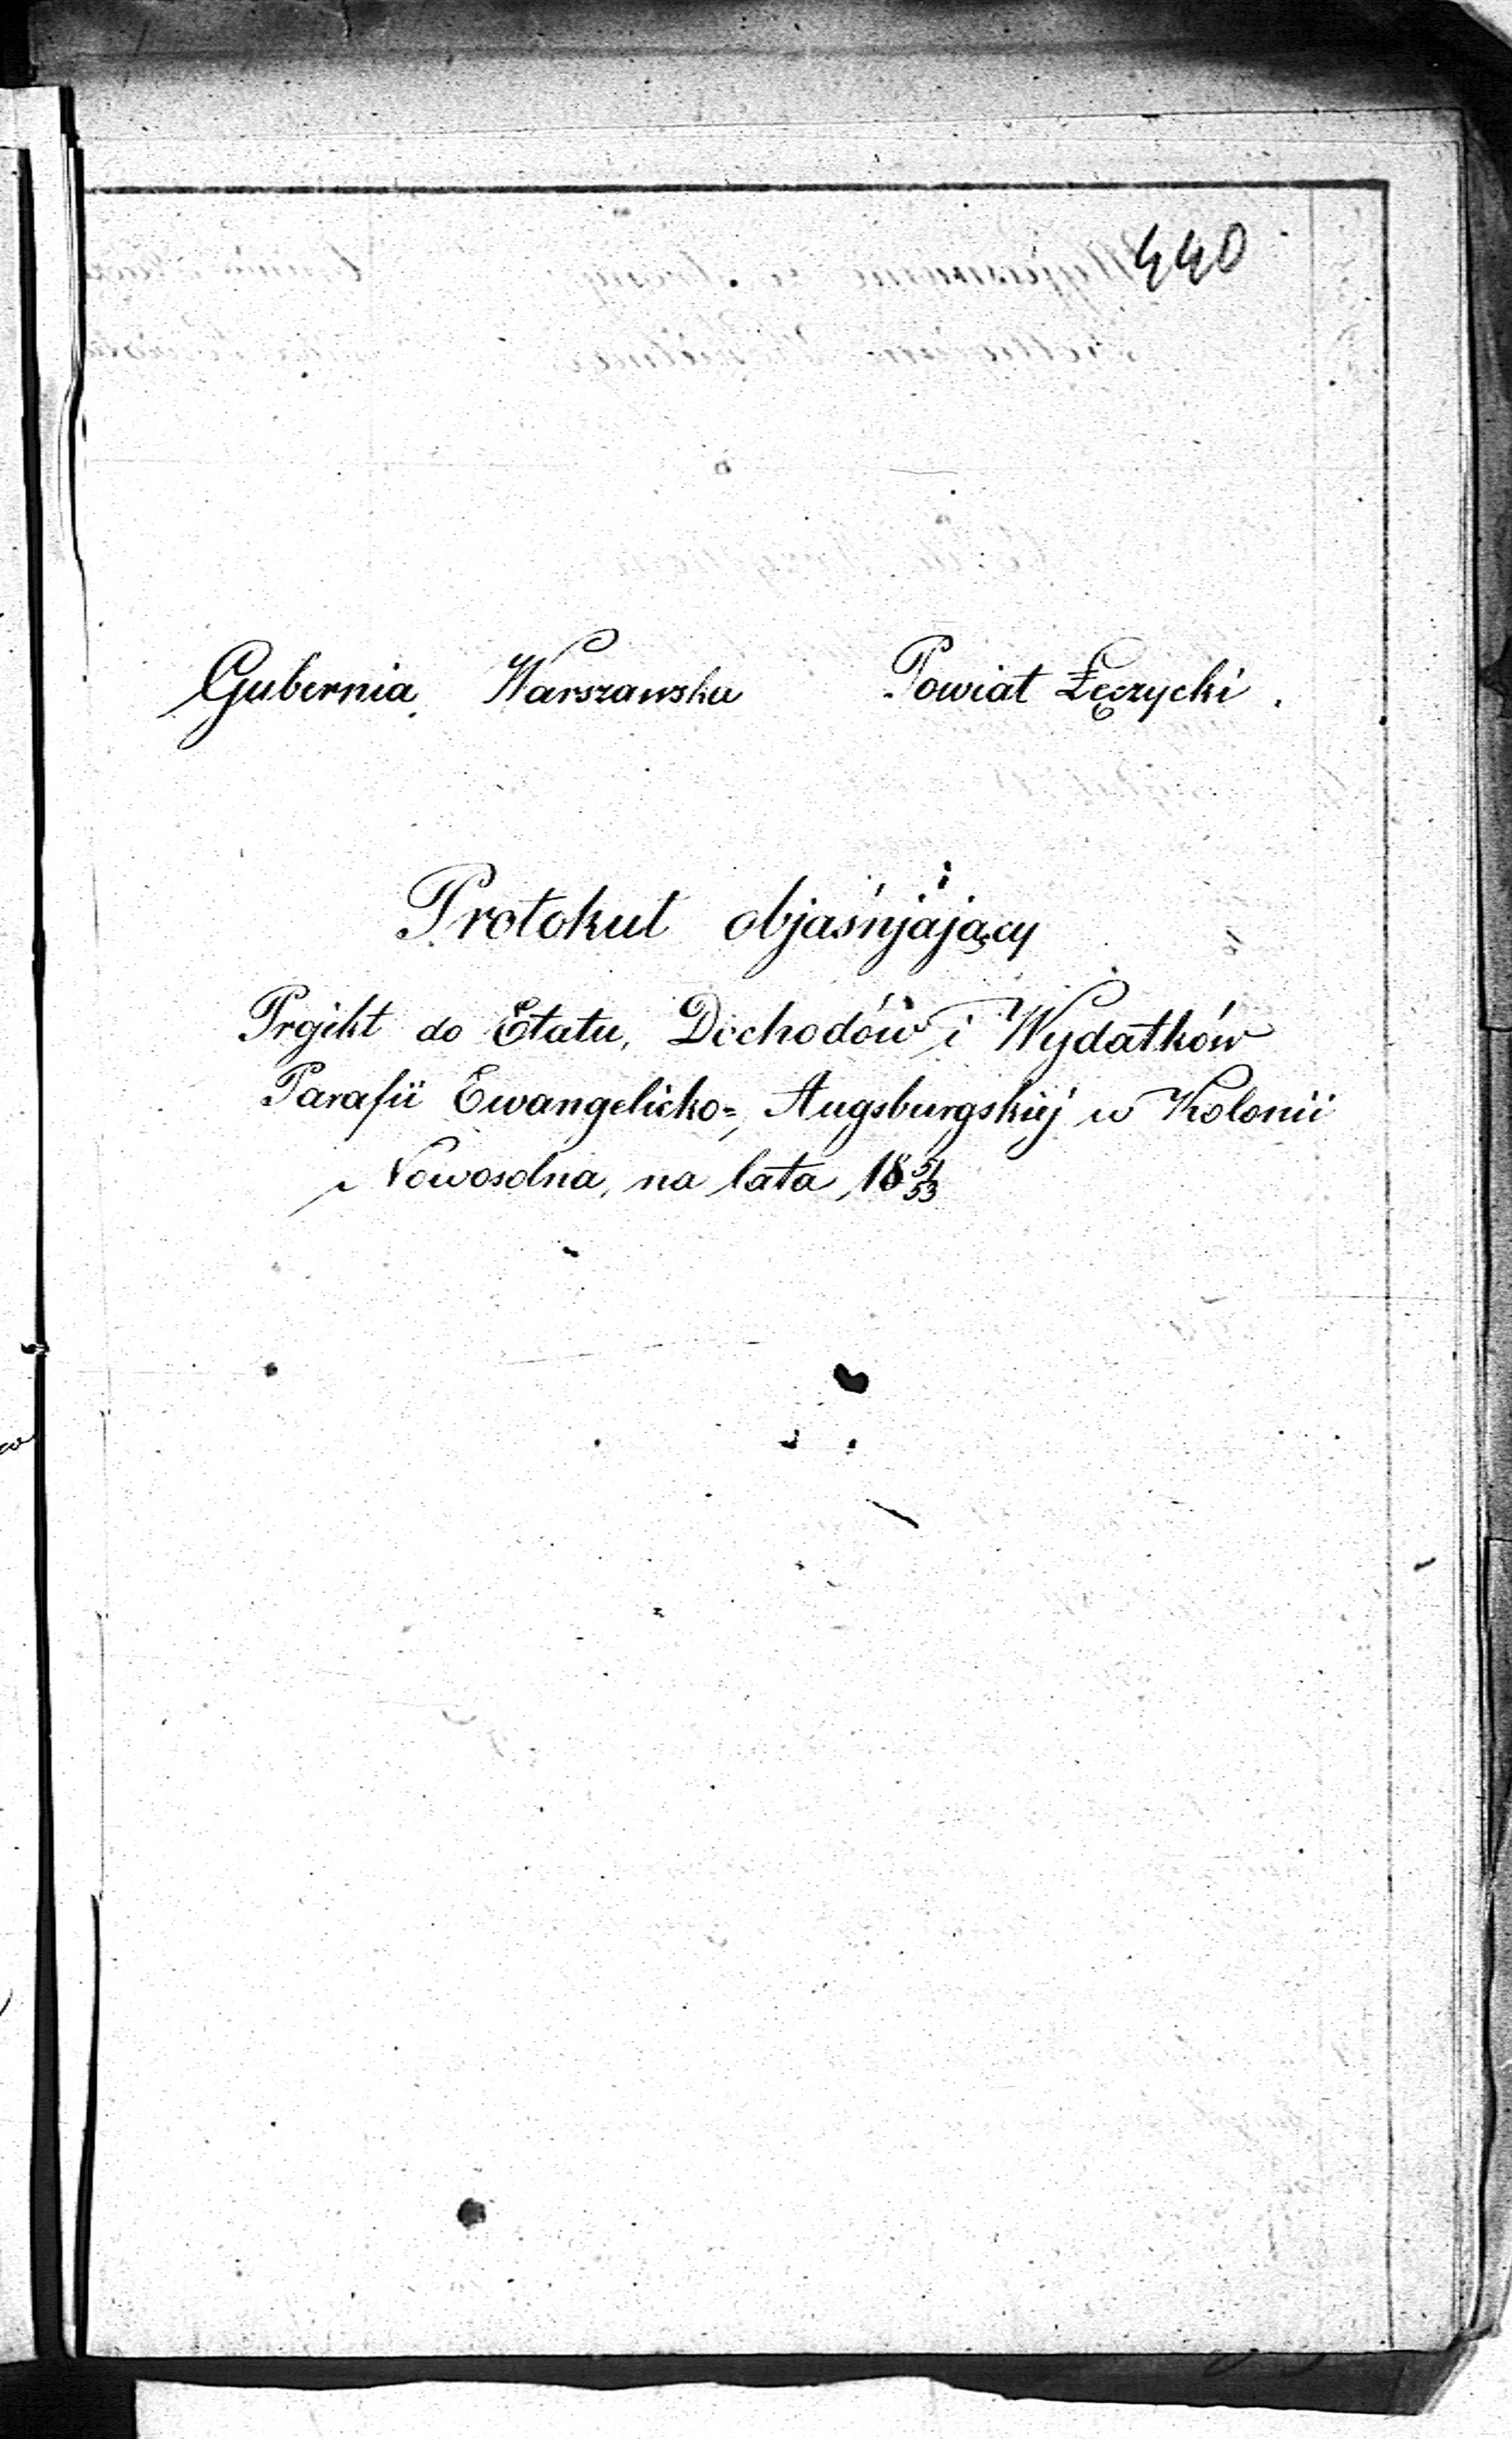 440
Gubernia Warszawska Powiat Łęczycki.
Protokuł objaśnjający
Projekt do Etatu, Dochodów i Wydatków
Parafii Ewangelicko= Augsburgskiej w Kolonii
Nowosolna, na lata 18 51/53